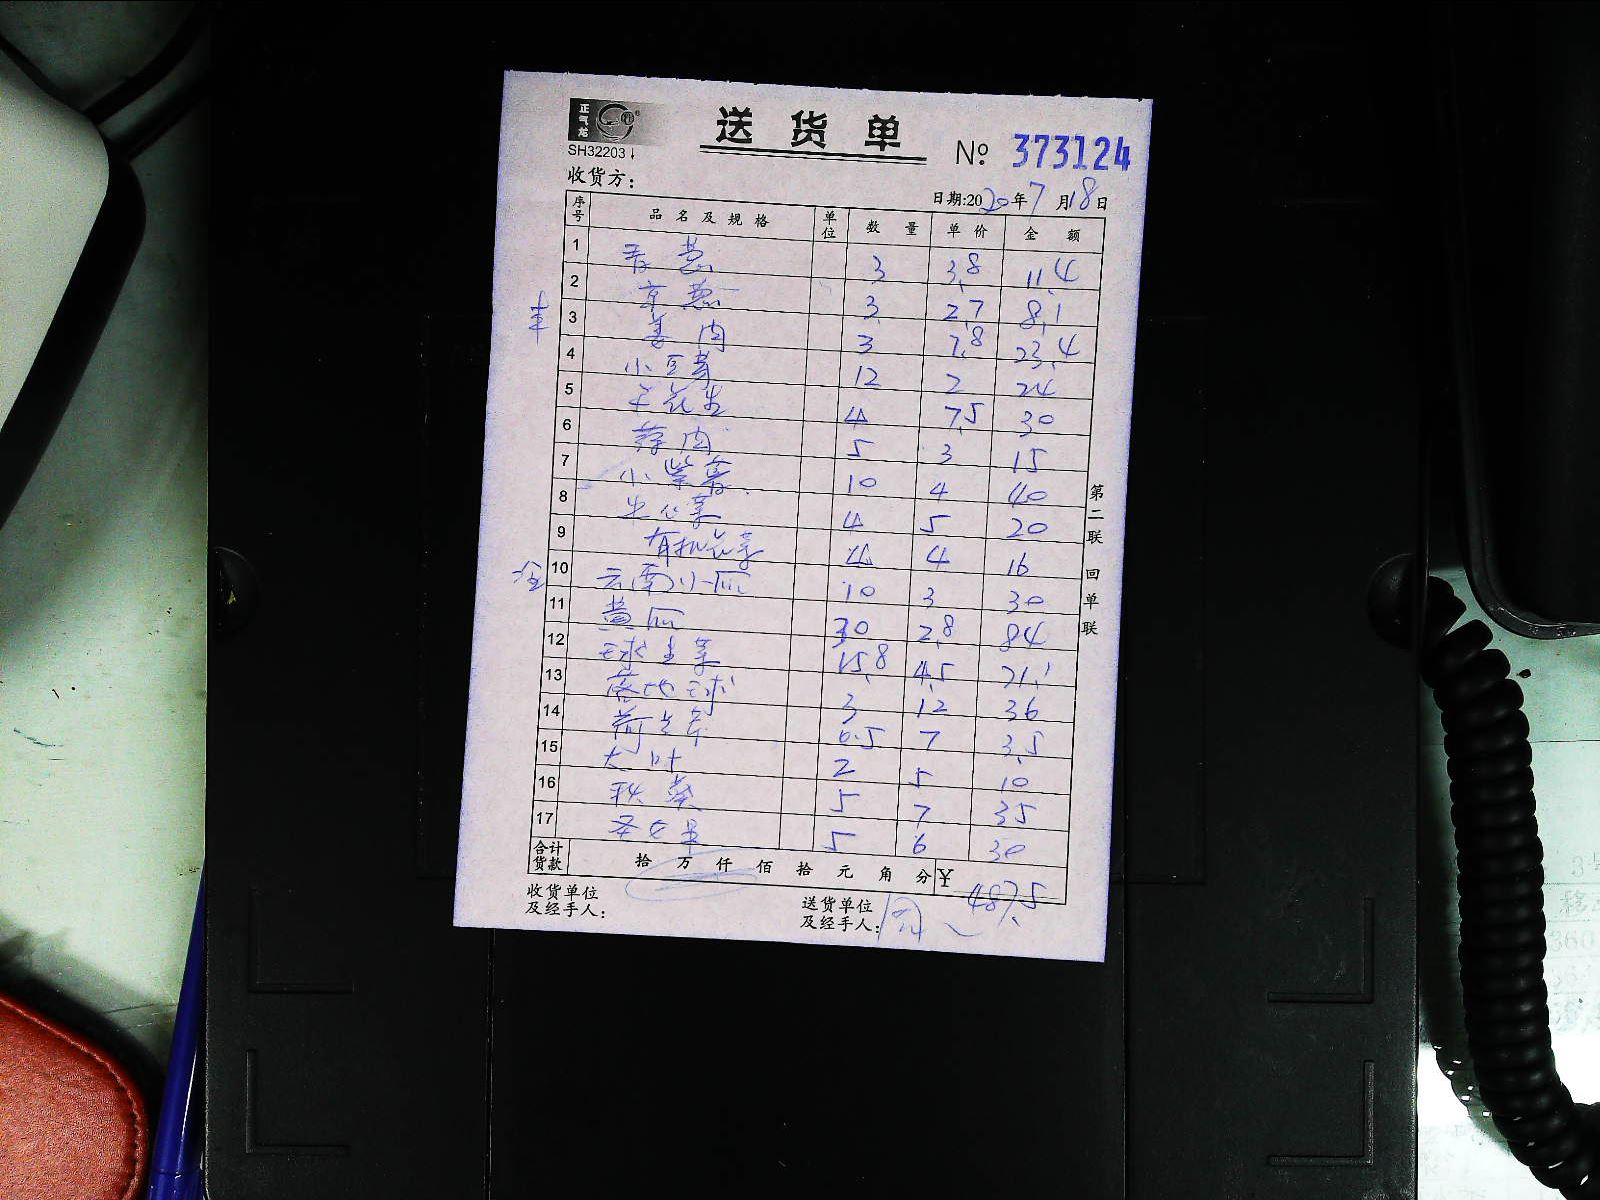 正气龙
SH32203
送货单
№ 373124
收货方:
日期:2020年7月18日
序号 品名及规格 单位 数量 单价 金额
1 香葱 3 3.8 11.4
2 京葱 3 2.7 8.1
3 姜肉 3 7.8 23.4
4 小豆芽 12 2 24
5 花生 4 7.5 30
6 蒜肉 5 3 15
7 小紫薯 10 4 40
8 生心菜 4 5 20
9 有机花菜 4 4 16
10 云南小瓜 10 3 30
11 黄瓜 30 2.8 84
12 球生菜 15.8 4.5 71.1
13 落地球 3 12 36
14 荷兰芹 0.5 7 3.5
15 大叶 2 5 10
16 秋葵 5 7 35
17 圣女果 5 6 30
合计货款 拾万仟佰拾元角分 ¥ 487.5
收货单位及经手人:
送货单位及经手人:
第二联 回单联